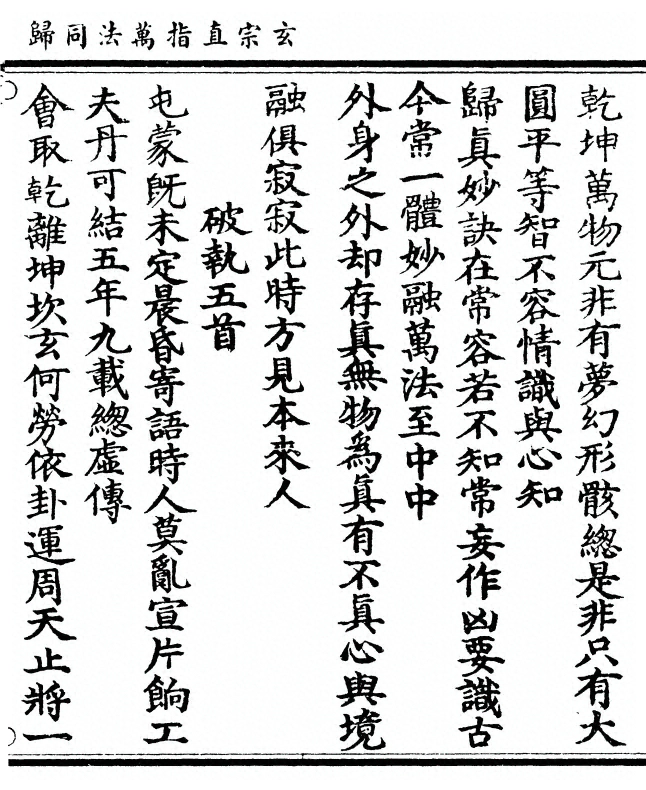 玄宗直指萬法同歸
乾坤萬物元非有夢幻形骸總是非只有大
圓平等智不容情識與心知
歸眞妙訣在常容若不知常妄作凶要識古
今常一體妙融萬法至中中
外身之外却存眞無物爲眞有不眞心與境
融俱寂寂此時方見本來人
破執五首
屯蒙旣未定晨昏寄語時人莫亂宣片餉工
夫丹可結五年九載總虛傳
會取乾離坤坎玄何勞依卦運周天止將一